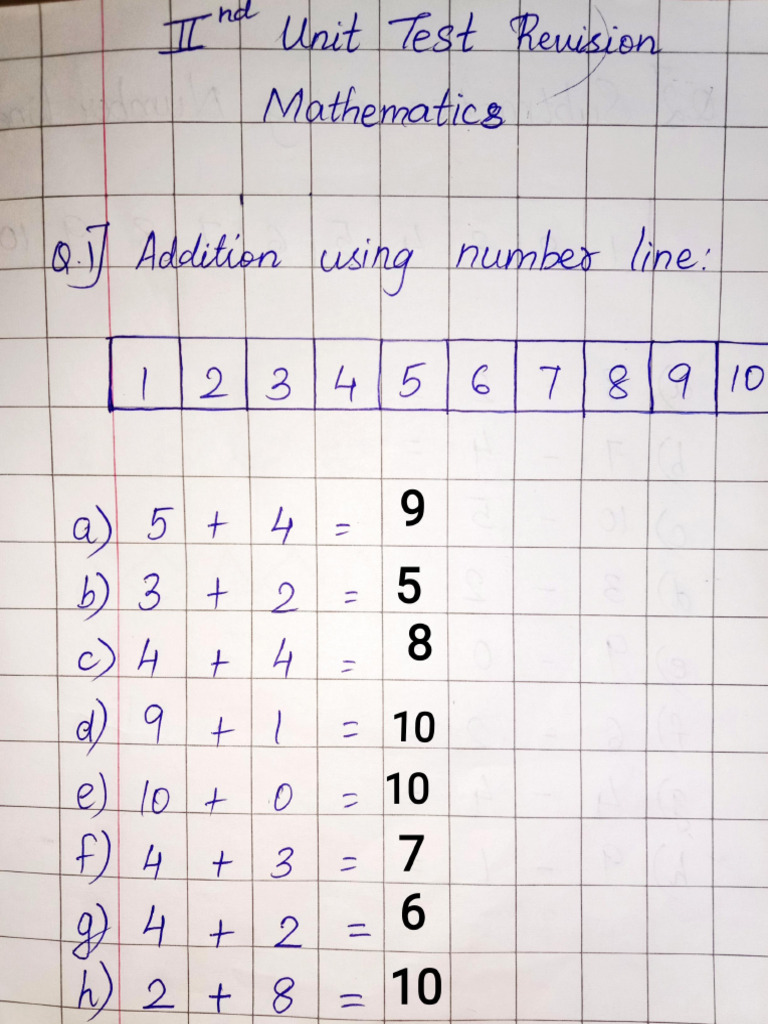 IInd Unit Test Revision
Mathematics
Q.1] Addition using number line:
1 2 3 4 5 6 7 8 9 10
a) 5 + 4 = 9
b) 3 + 2 = 5
c) 4 + 4 = 8
d) 9 + 1 = 10
e) 10 + 0 = 10
f) 4 + 3 = 7
g) 4 + 2 = 6
h) 2 + 8 = 10